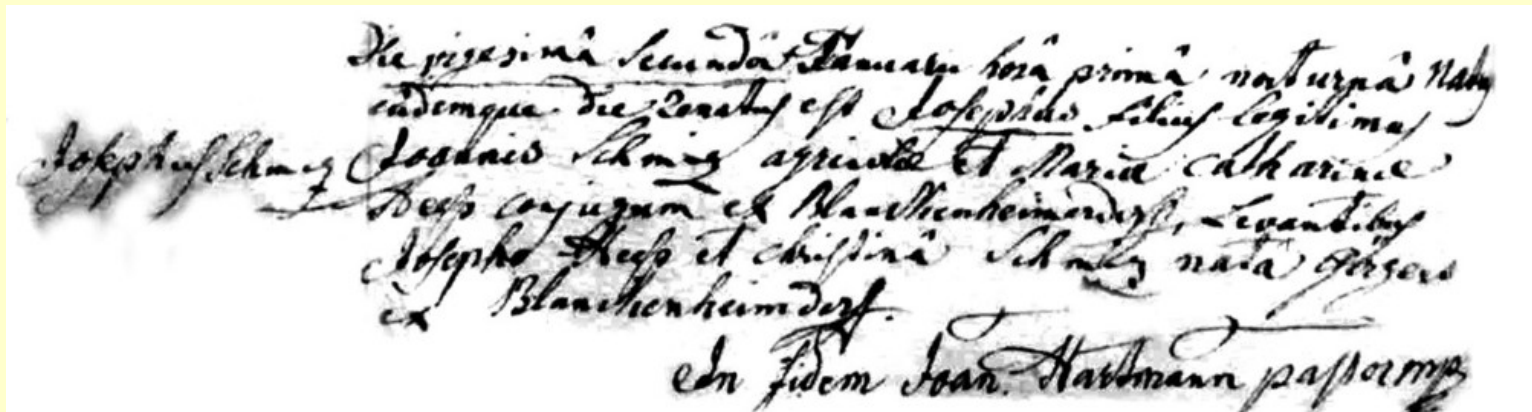 Die vigesimâ secundâ Januarii horâ primâ nocturnâ natus
eâdemque die renatus est Josephus filius legitimus
Josephus Schmiz
Joannis Schmiz agricolae et Mariae Catharinae
Heß conjugum ex Blanckenheimerdorf, Levantibus
Josepho Heß et Christinâ Schmiz natâ
ex Blanckenheimdorf.
In fidem Joan. Hartmann pastor mp